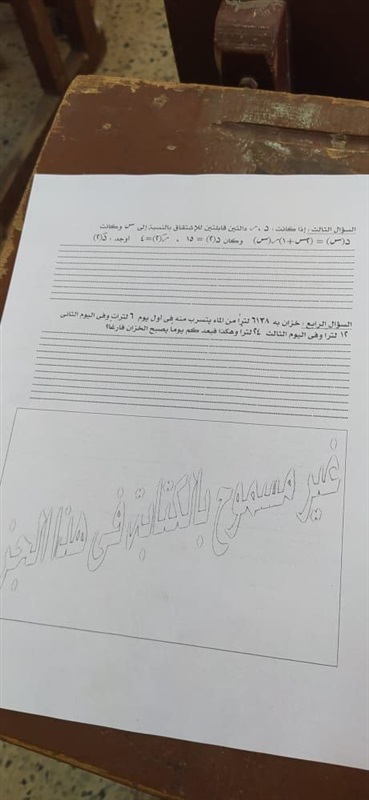 السؤال الثالث : إذا كانت : د ، ر دالتين قابلتين للاشتقاق بالنسبة إلى س وكانت
د(س) = (٢س + ١) ر(س) وكان د(٢) = ١٥ ، رَ(٢) = ٤ أوجد : دَ(٢)
السؤال الرابع : خزان به ٦١٣٨ لتراً من الماء يتسرب منه فى أول يوم ٦ لترات وفى اليوم الثانى
١٢ لتراً وفى اليوم الثالث ٢٤ لتراً وهكذا فبعد كم يوما يصبح الخزان فارغا؟
غير مسموح بالكتابة فى هذا الجز